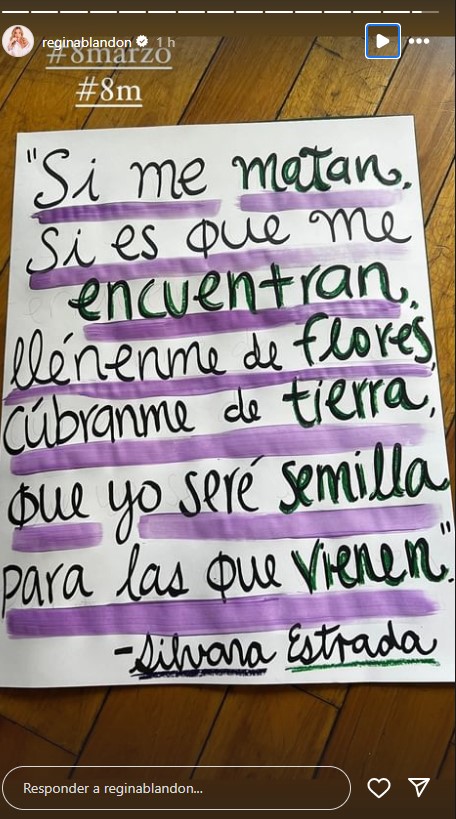 reginablandon 1 h
#8marzo
#8m
"Si me matan,
Si es que me
encuentran,
llénenme de flores,
cúbranme de tierra,
que yo seré semilla
para las que vienen".
-Silvana Estrada
Responder a reginablandon...